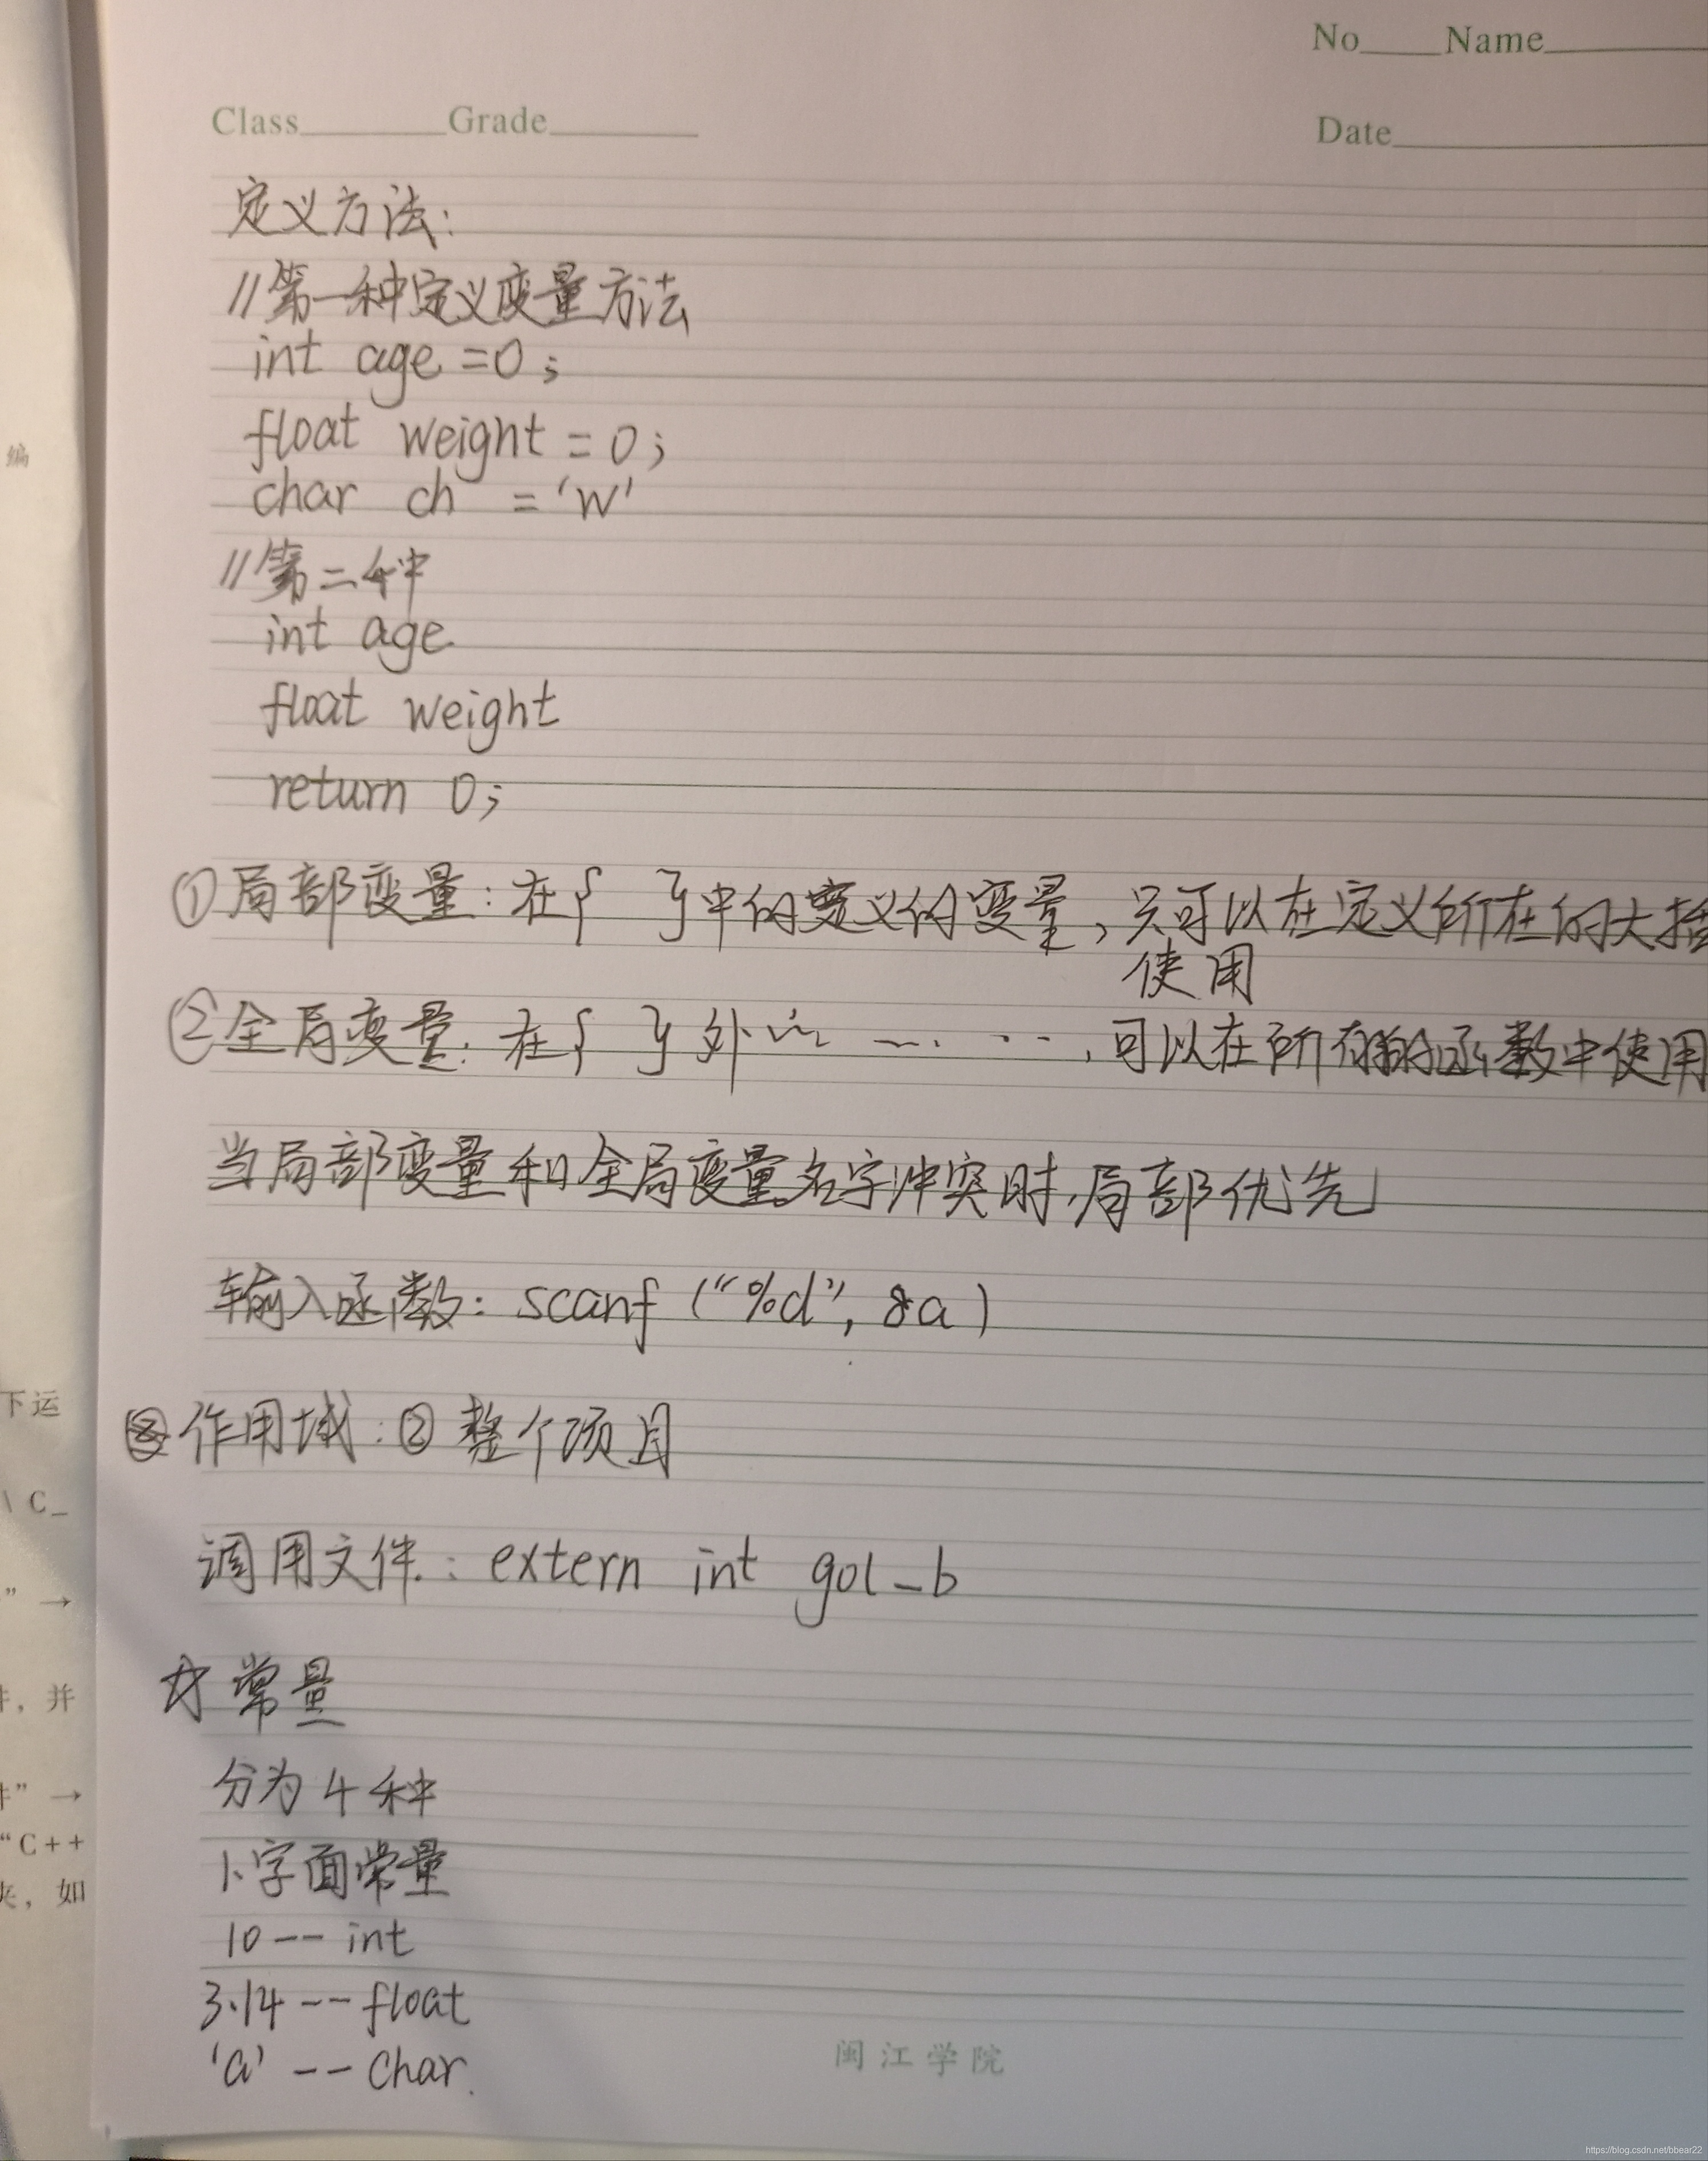 No____Name____
Class____Grade____
Date____
定义方法:
//第一种定义变量方法
int age =0;
float weight = 0;
char ch = 'w'
//第二种
int age
float weight
return 0;
①局部变量: 在{ }中的定义的变量, 只可以在定义所在的大括
使用
②全局变量: 在{ }外 ﹏ —.. ..., 可以在所有的函数中使用
当局部变量和全局变量名字冲突时,局部优先
输入函数: scanf ("%d", &a)
作用域: ② 整个项目
调用文件: extern int gol_b
☆常量
分为4种
1、字面常量
10 -- int
3.14 -- float
'a' -- char.
闽江学院
编
下运
\ C_
” →
,并
” →
“C++
,如
https://blog.csdn.net/bbear22